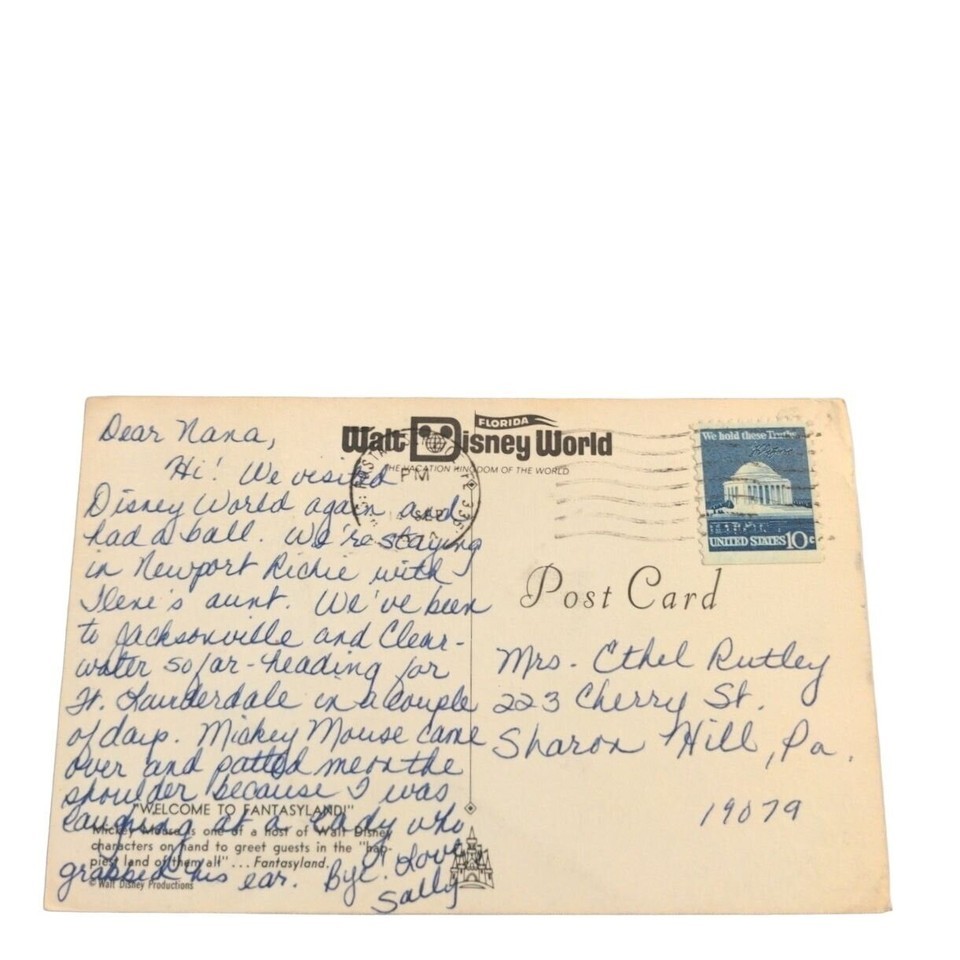 Dear Nana,
Hi! We visited
Disney World again and
had a ball. We're staying
in Newport Richie with
Ilene's aunt. We've been
to Jacksonville and Clear-
water so far - heading for
Ft. Lauderdale in a couple
of days. Mickey Mouse came
over and patted me on the
shoulder because I was
laughing at a lady who
grabbed his ear. Bye! Love
Sally
FLORIDA
Walt Disney World
THE VACATION KINGDOM OF THE WORLD
PM
SEP
We hold these Truths
UNITED STATES 10c
Post Card
Mrs. Ethel Rutley
223 Cherry St.
Sharon Hill, Pa.
19079
"WELCOME TO FANTASYLAND!"
Mickey Mouse is one of a host of Walt Disney
characters on hand to greet guests in the "hap-
piest land of them all" ... Fantasyland.
© Walt Disney Productions